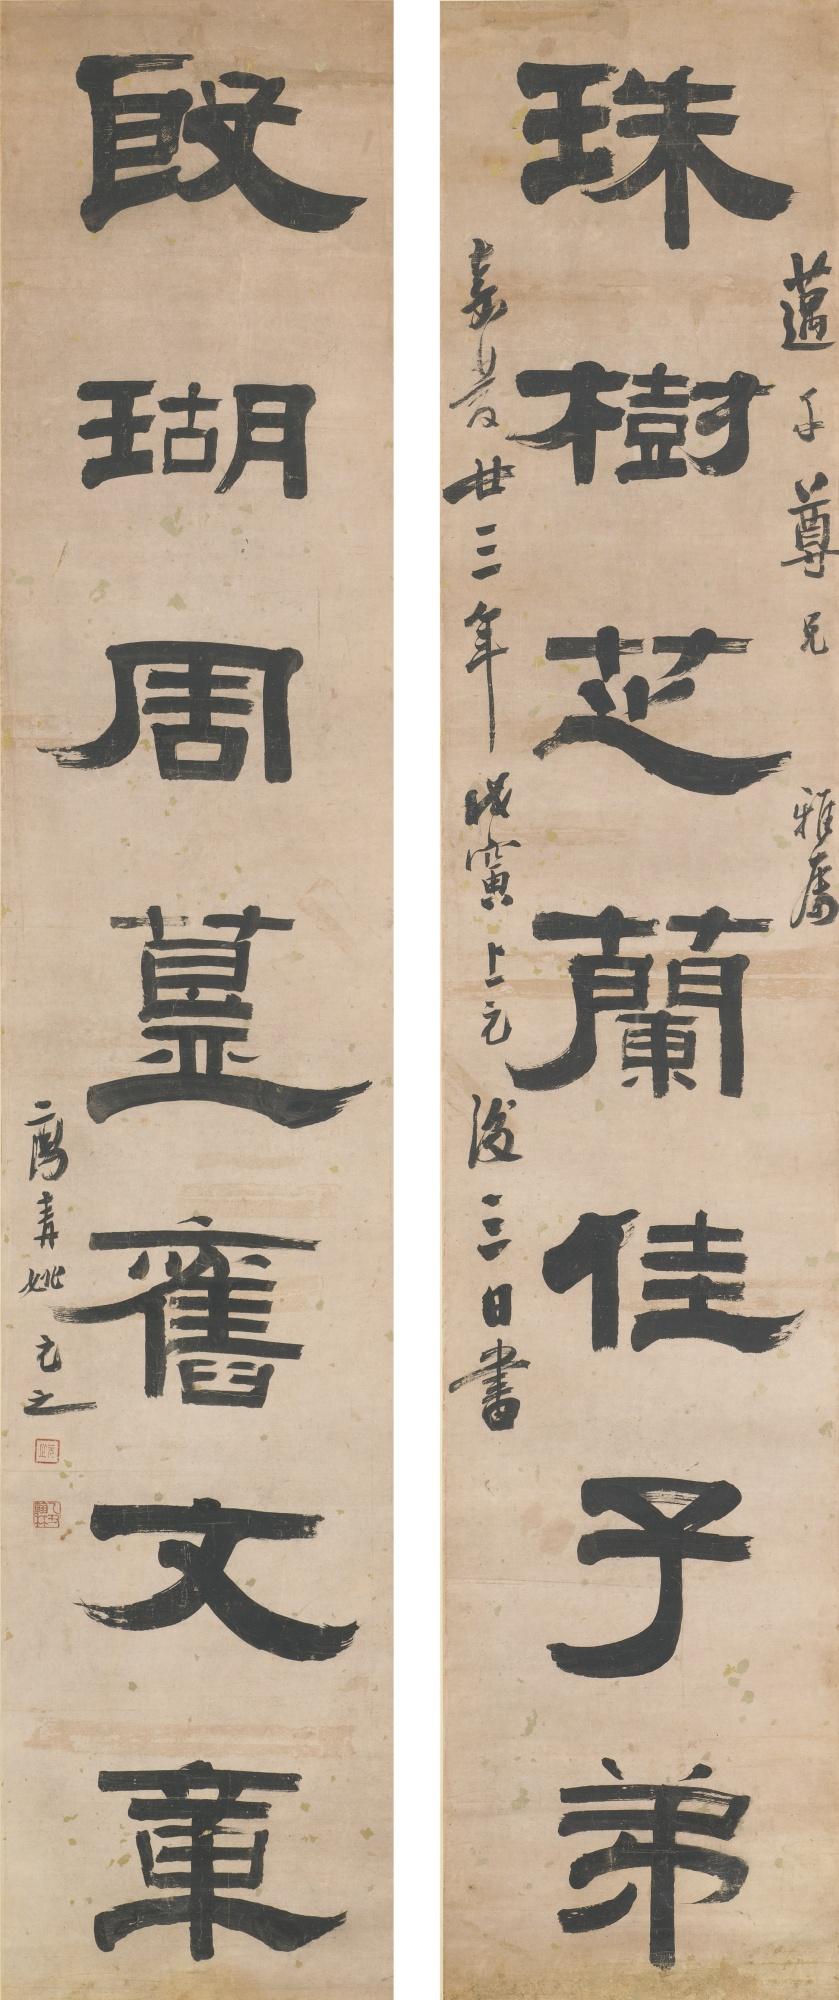 珠樹芝蘭佳子弟
邁千尊兄 雅屬
嘉慶廿三年戊寅上元後三日書
殷瑚周簋舊文章
薦青姚元之